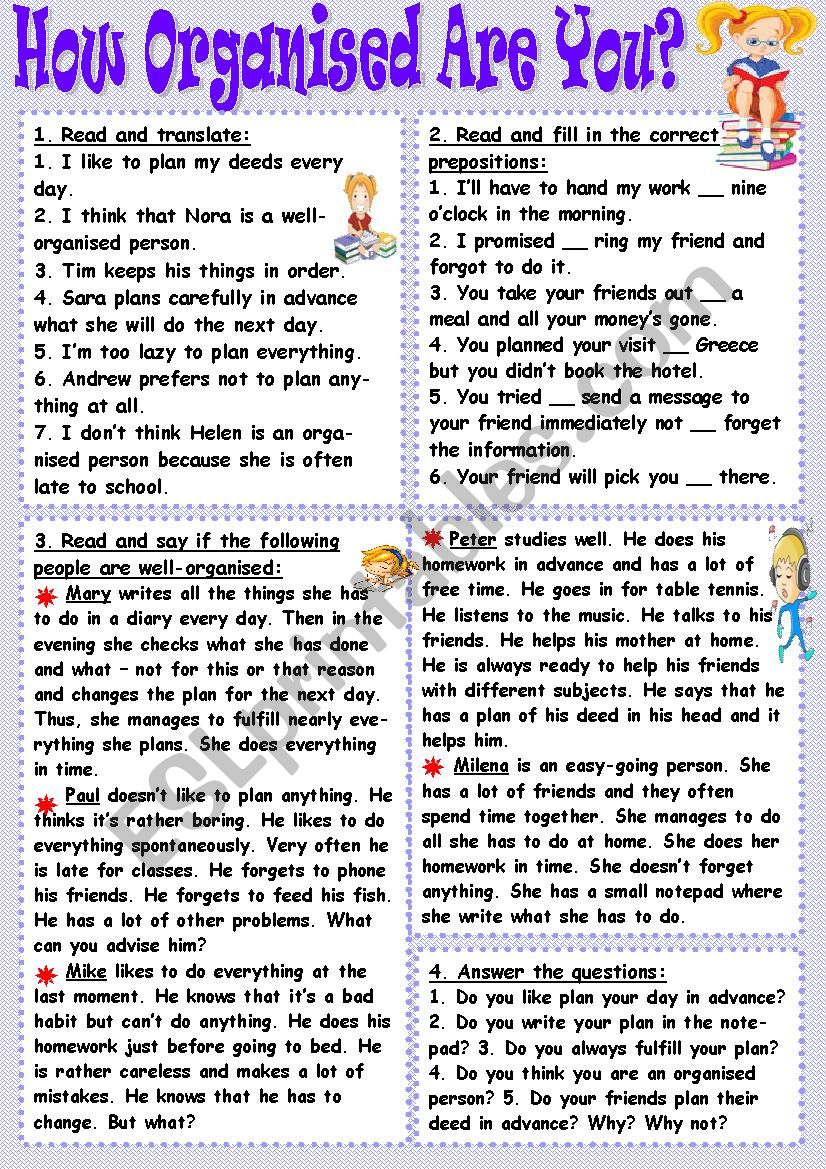 How Organised Are You?
1. Read and translate:
1. I like to plan my deeds every
day.
2. I think that Nora is a well-
organised person.
3. Tim keeps his things in order.
4. Sara plans carefully in advance
what she will do the next day.
5. I'm too lazy to plan everything.
6. Andrew prefers not to plan any-
thing at all.
7. I don't think Helen is an orga-
nised person because she is often
late to school.
2. Read and fill in the correct
prepositions:
1. I'll have to hand my work __ nine
o'clock in the morning.
2. I promised __ ring my friend and
forgot to do it.
3. You take your friends out __ a
meal and all your money's gone.
4. You planned your visit __ Greece
but you didn't book the hotel.
5. You tried __ send a message to
your friend immediately not __ forget
the information.
6. Your friend will pick you __ there.
3. Read and say if the following
people are well-organised:
Mary writes all the things she has
to do in a diary every day. Then in the
evening she checks what she has done
and what – not for this or that reason
and changes the plan for the next day.
Thus, she manages to fulfill nearly eve-
rything she plans. She does everything
in time.
Paul doesn't like to plan anything. He
thinks it's rather boring. He likes to do
everything spontaneously. Very often he
is late for classes. He forgets to phone
his friends. He forgets to feed his fish.
He has a lot of other problems. What
can you advise him?
Mike likes to do everything at the
last moment. He knows that it's a bad
habit but can't do anything. He does his
homework just before going to bed. He
is rather careless and makes a lot of
mistakes. He knows that he has to
change. But what?
Peter studies well. He does his
homework in advance and has a lot of
free time. He goes in for table tennis.
He listens to the music. He talks to his
friends. He helps his mother at home.
He is always ready to help his friends
with different subjects. He says that he
has a plan of his deed in his head and it
helps him.
Milena is an easy-going person. She
has a lot of friends and they often
spend time together. She manages to do
all she has to do at home. She does her
homework in time. She doesn't forget
anything. She has a small notepad where
she write what she has to do.
4. Answer the questions:
1. Do you like plan your day in advance?
2. Do you write your plan in the note-
pad? 3. Do you always fulfill your plan?
4. Do you think you are an organised
person? 5. Do your friends plan their
deed in advance? Why? Why not?
ESLprintables.com